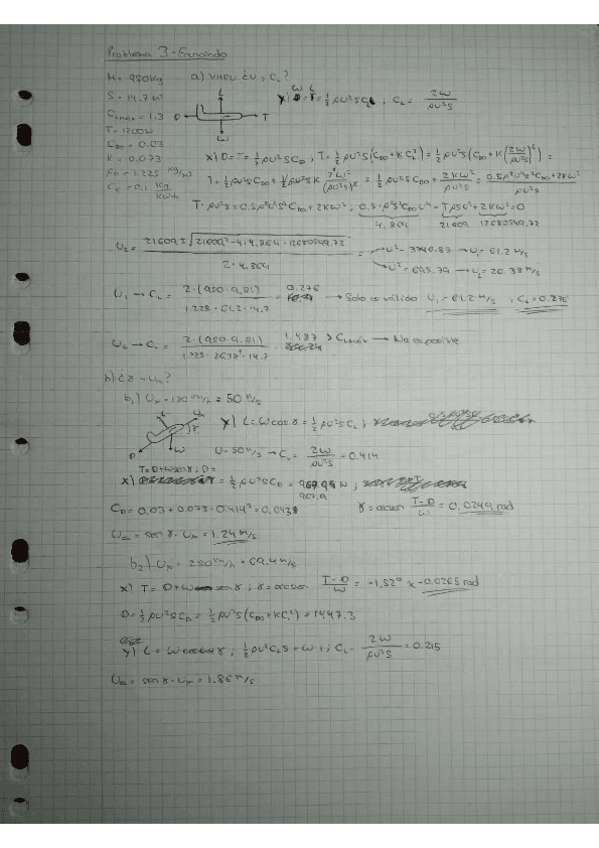 Problema 3 - Enunciado
M = 950kg
S = 14.7 m²
CLmax = 1.3
T = 1200N
CD0 = 0.03
K = 0.073
ρ0 = 1.225 kg/m³
a) VHRU ¿U, CL?
L
D T
W
y) L = ½ρU²SCL ; CL = 2W/ρU²S
x) D = T = ½ρU²SCD ; T = ½ρU²S(CD0 + KCL²) = ½ρU²S(CD0 + K(2W/ρU²S)²) =
T = ½ρU²SCD0 + ½ρU²SK = ½ρU²SCD0 + 2KW²/ρU²S = 0.5ρ²U⁴S²CD0 + 2KW²/ρU²S
T·ρU²S = 0.5ρ²U⁴S²CD0 + 2KW² ; 0.5·ρ²S²CD0 U⁴ - TρSU² + 2KW² = 0
4.864 21609 12680549.72
U² = 21609 ± √21609² - 4·4.864·12680549.72 / 2·4.864 =
U² = 3740.83 → U1 = 61.2 m/s
U² = 695.79 → U2 = 26.38 m/s
U1 → CL = 2·(950·9.81) / 1.225·61.2²·14.7 = 0.276 → Solo es válido U1 = 61.2 m/s , CL = 0.276
U2 → CL = 2·(950·9.81) / 1.225·26.38²·14.7 = 1.487 > CLmax → No es posible
b) ¿γ - Uh?
b1) = 50 m/s
y) L = W cos γ = ½ρU²SCL ;
U = 50 m/s → CL = 2W/ρU²S = 0.414
T = D + W sen γ ; D =
x) = ½ρU²SCD = N ;
CD = 0.03 + 0.073·0.414² =
γ = arcsen T - D/W = 0.0249 rad
= sen γ · = 1.24 m/s
b2) = 250 km/h = 69.4 m/s
x) T = D + W sen γ ; γ = arcsen T - D/W = -1.52° = -0.0265 rad
D = ½ρU²SCD = ½ρU²S(CD0 + KCL²) = 1447.3
y) L = W cos γ ; ½ρU²CLS = W·1 ; CL = 2W/ρU²S = 0.215
= sen γ · = 1.86 m/s